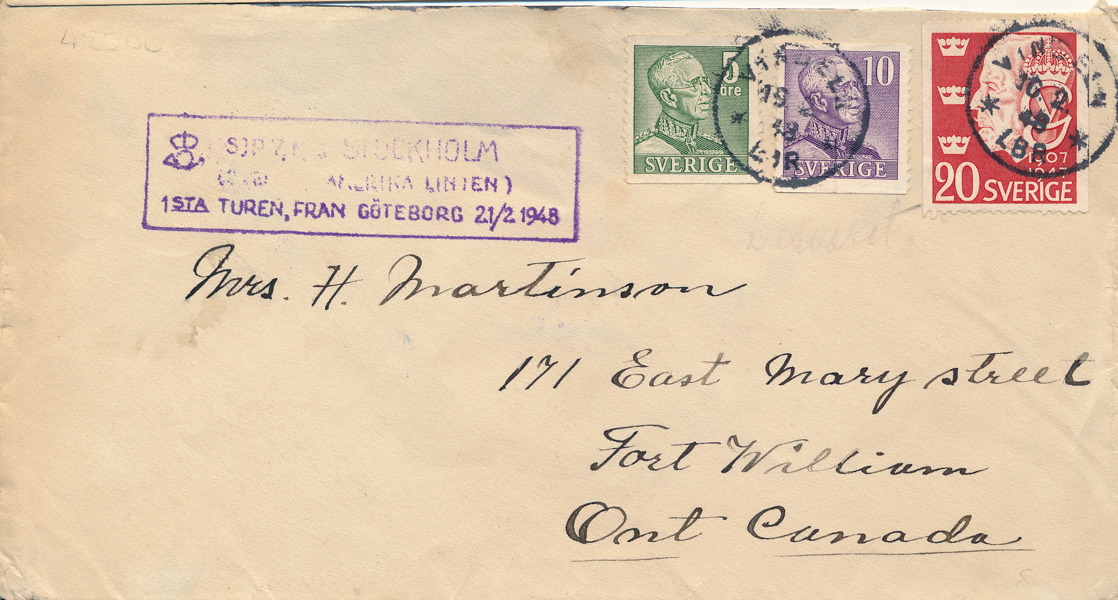 5 öre
SVERIGE
10
SVERIGE
1907
1947
20 SVERIGE
STOCKHOLM
AMERIKA LINIEN)
1STA TUREN, FRAN GÖTEBORG 21/2 1948
Mrs. H. Martinson
171 East Mary street
Fort William
Ont Canada